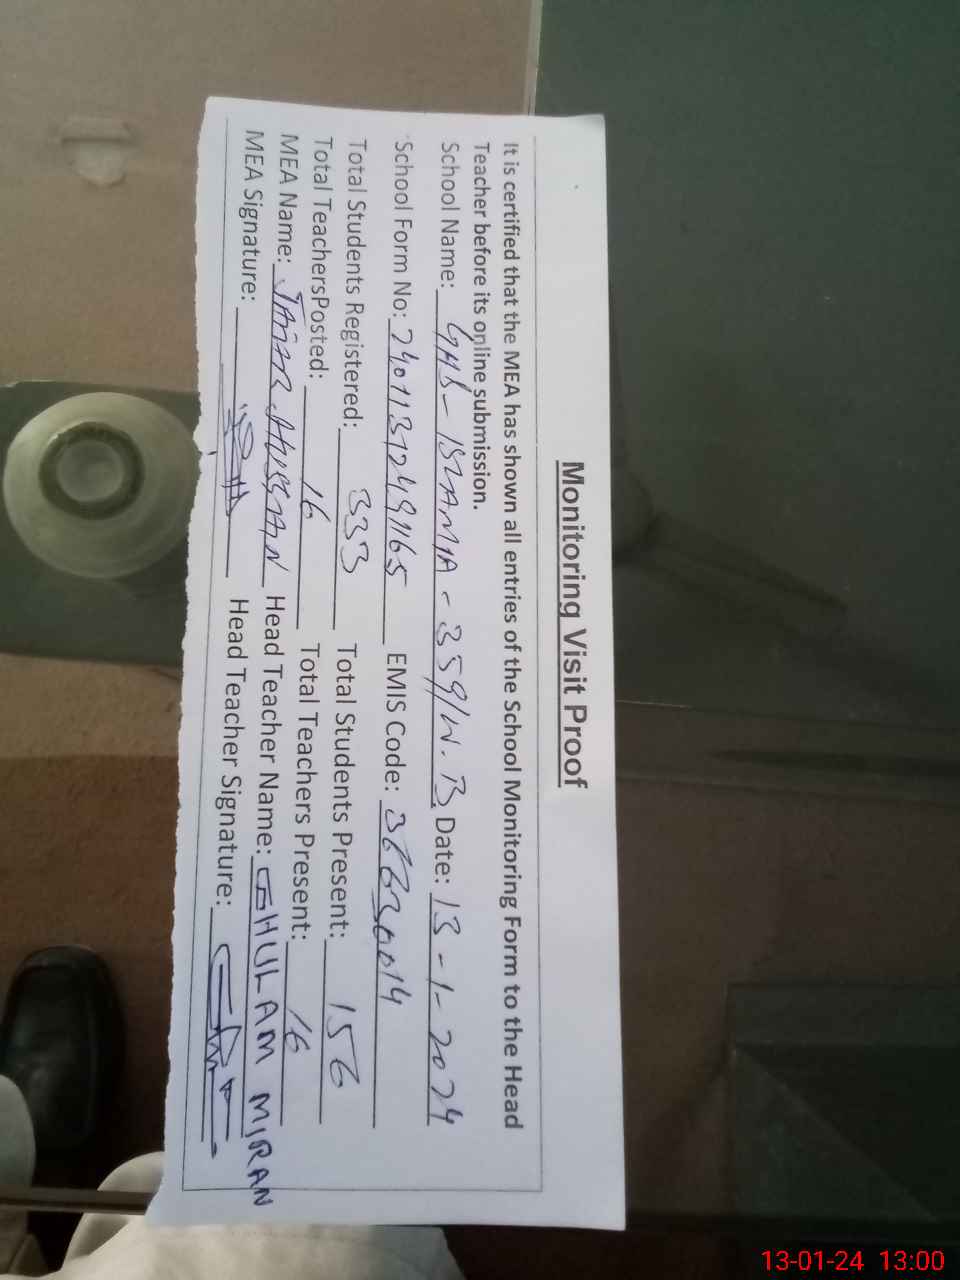 Monitoring Visit Proof
It is certified that the MEA has shown all entries of the School Monitoring Form to the Head
Teacher before its online submission.
School Name: GHS-ISLAMIA-359/W.B Date: 13-1-2024
School Form No: 2401131249165 EMIS Code:
Total Students Registered: 333 Total Students Present: 156
Total TeachersPosted: 16 Total Teachers Present: 16
MEA Name: HUSSAIN Head Teacher Name: GHULAM MIRAN
MEA Signature: Head Teacher Signature:
13-01-24 13:00